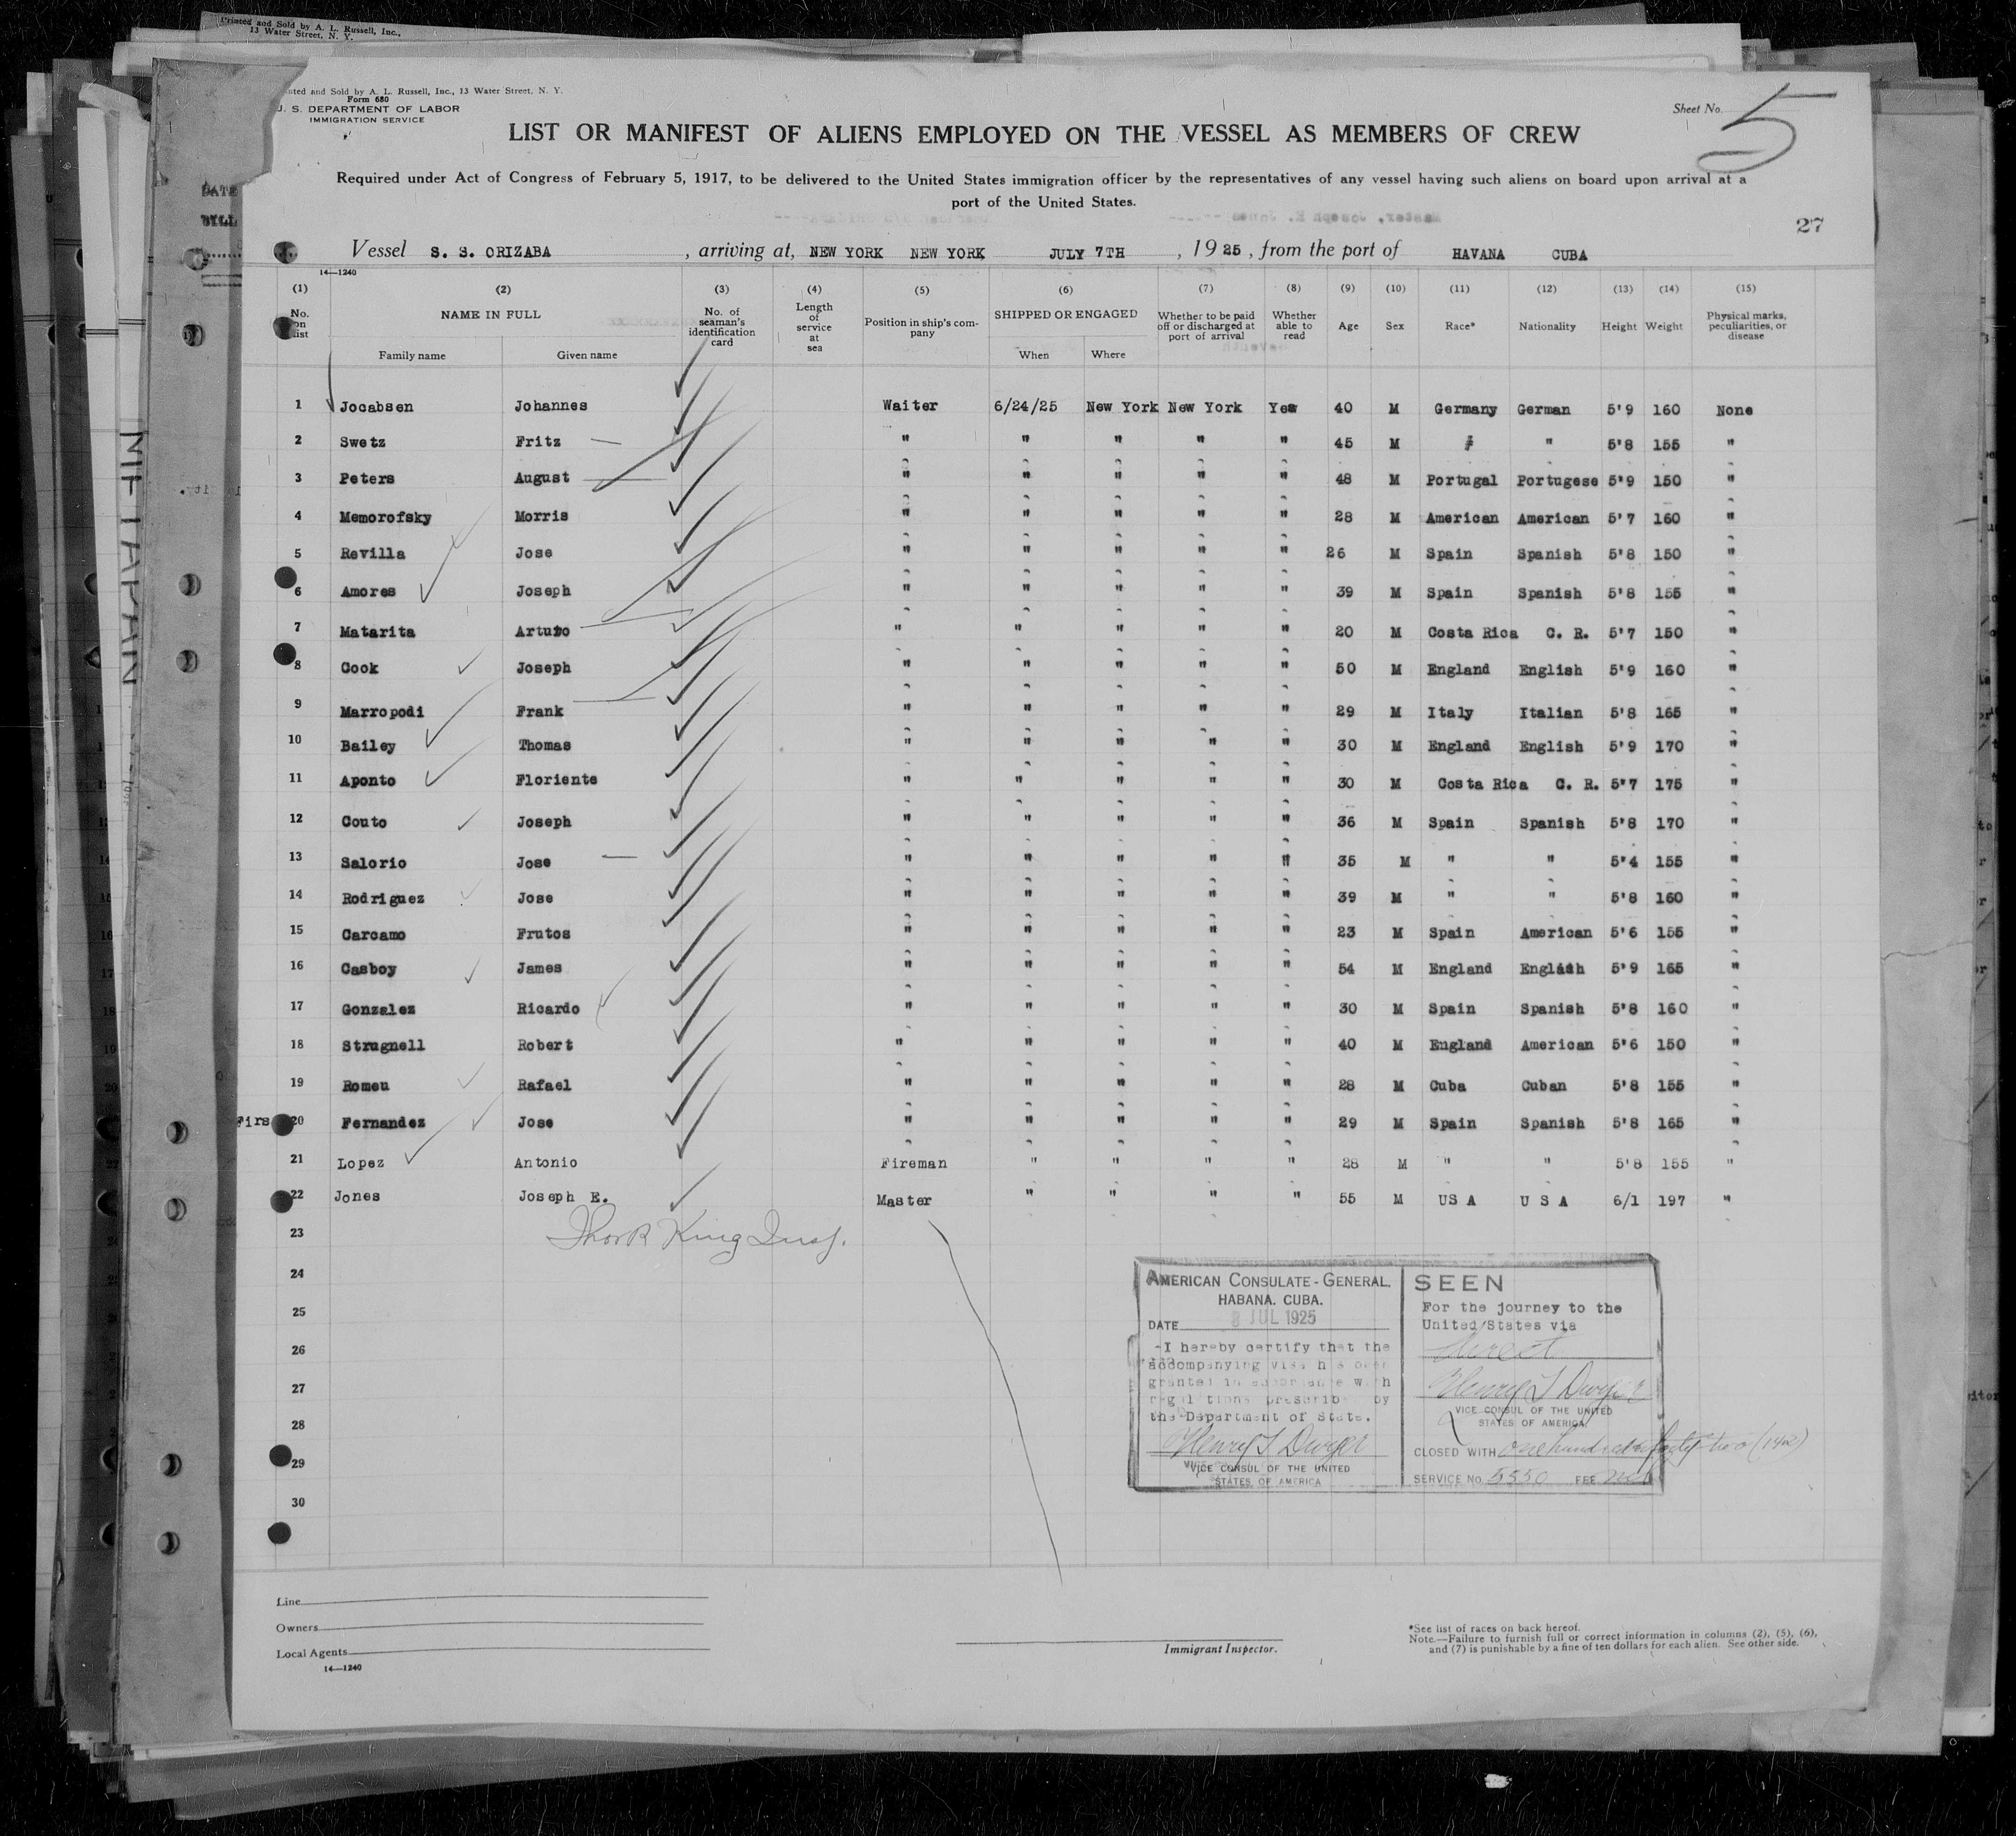 Printed and Sold by A. L. Russell, Inc.,
13 Water Street, N. Y.
nted and Sold by A. L. Russell, Inc., 13 Water Street, N. Y.
Form 680
U. S. DEPARTMENT OF LABOR
IMMIGRATION SERVICE
Sheet No. 5
LIST OR MANIFEST OF ALIENS EMPLOYED ON THE VESSEL AS MEMBERS OF CREW
Required under Act of Congress of February 5, 1917, to be delivered to the United States immigration officer by the representatives of any vessel having such aliens on board upon arrival at a
port of the United States.
DATE
BILL
27
Vessel S. S. ORIZABA , arriving at, NEW YORK NEW YORK JULY 7TH , 1925 , from the port of HAVANA CUBA
14—1240
(1) (2) (3) (4) (5) (6) (7) (8) (9) (10) (11) (12) (13) (14) (15)
No. on list NAME IN FULL Family name Given name No. of seaman's identification card Length of service at sea Position in ship's company SHIPPED OR ENGAGED When Where Whether to be paid off or discharged at port of arrival Whether able to read Age Sex Race* Nationality Height Weight Physical marks, peculiarities, or disease
1 Jocabsen Johannes Waiter 6/24/25 New York New York Yes 40 M Germany German 5'9 160 None
2 Swetz Fritz " " " " " 45 M " " 5'8 155 "
3 Peters August " " " " " 48 M Portugal Portugese 5'9 150 "
4 Memorofsky Morris " " " " " 28 M American American 5'7 160 "
5 Revilla Jose " " " " " 26 M Spain Spanish 5'8 150 "
6 Amores Joseph " " " " " 39 M Spain Spanish 5'8 155 "
7 Matarita Arturo " " " " " 20 M Costa Rica C. R. 5'7 150 "
8 Cook Joseph " " " " " 50 M England English 5'9 160 "
9 Marropodi Frank " " " " " 29 M Italy Italian 5'8 165 "
10 Bailey Thomas " " " " " 30 M England English 5'9 170 "
11 Aponto Floriente " " " " " 30 M Costa Rica C. R. 5'7 175 "
12 Couto Joseph " " " " " 36 M Spain Spanish 5'8 170 "
13 Salorio Jose " " " " " 35 M " " 5'4 155 "
14 Rodriguez Jose " " " " " 39 M " " 5'8 160 "
15 Carcamo Frutos " " " " " 23 M Spain American 5'6 155 "
16 Casboy James " " " " " 54 M England English 5'9 165 "
17 Gonzalez Ricardo " " " " " 30 M Spain Spanish 5'8 160 "
18 Strugnell Robert " " " " " 40 M England American 5'6 150 "
19 Romeu Rafael " " " " " 28 M Cuba Cuban 5'8 155 "
Firs 20 Fernandez Jose " " " " " 29 M Spain Spanish 5'8 165 "
21 Lopez Antonio Fireman " " " " 28 M " " 5'8 155 "
22 Jones Joseph E. Master " " " " 55 M USA USA 6/1 197 "
23 King Insp.
24
25
26
27
28
29
30
AMERICAN CONSULATE-GENERAL.
HABANA. CUBA.
DATE 3 JUL 1925
I hereby certify that the
accompanying visa has been
granted in accordance with
regulations prescribed by
the Department of State.
Henry T Dwyer
VICE CONSUL OF THE UNITED
STATES OF AMERICA
SEEN
For the journey to the
United States via
direct
Henry T Dwyer
VICE CONSUL OF THE UNITED
STATES OF AMERICA
CLOSED WITH one hundred forty two (142)
SERVICE No. 5550 FEE
Line
Owners
Local Agents
14—1240
Immigrant Inspector.
*See list of races on back hereof.
Note.—Failure to furnish full or correct information in columns (2), (5), (6),
and (7) is punishable by a fine of ten dollars for each alien. See other side.